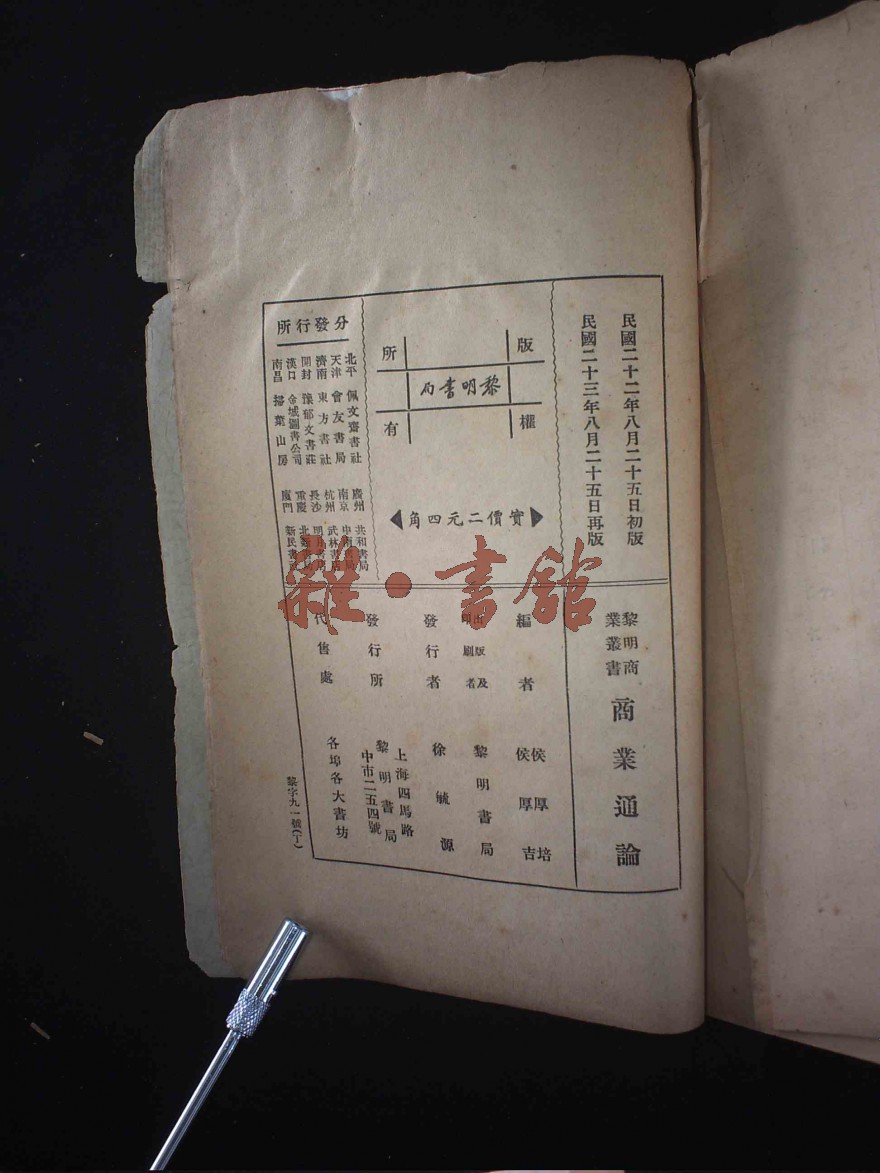 民國二十二年八月二十五日初版
民國二十三年八月二十五日再版
版權所有
黎明書局
實價二元四角
分發行所
北平 佩文齋書社
天津 會友書局
濟南 東方書社
開封 豫郁文書莊
漢口 金城圖書公司
南昌 掃葉山房
廣州 共和書局
南京
杭州 武林書
長沙
重慶 北
廈門 新民書
黎明商業叢書
商業通論
編者 侯厚培 侯厚吉
出版及印刷者 黎明書局
發行者 徐毓源
發行所 上海四馬路中市二五四號 黎明書局
代售處 各埠各大書坊
黎字九一號(丁)
雜·書館